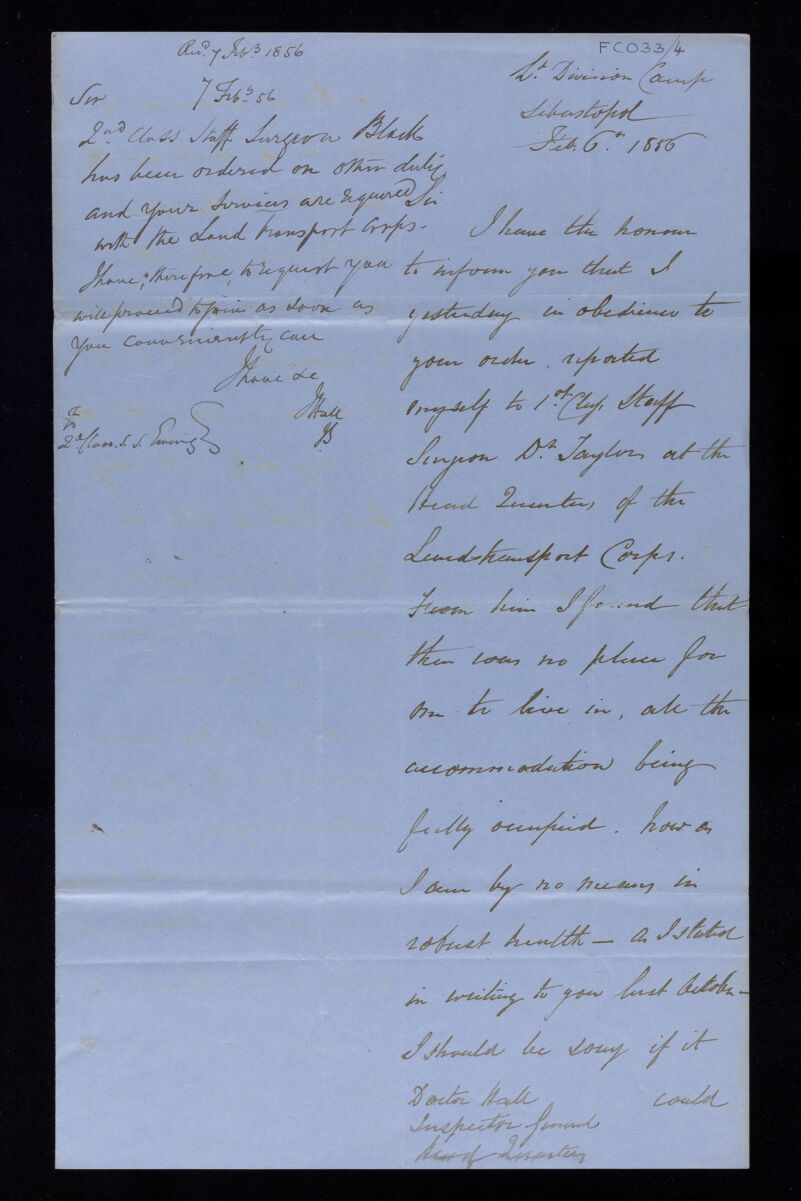 Recd. 7 Feby 1856
7 Feby 56
Sir
2nd Class Staff Surgeon Black
has been ordered on other duty,
and your services are required
with the Land Transport Corps.
I have, therefore, to request you
will proceed to join as soon as
you conveniently can
I have &c
J Hall
To
2d Class. S. S. Ewing
FCO33/4
Lt Division Camp
Sebastopol
Feb. 6th 1856
Sir
I have the honour
to inform you that I
yesterday in obedience to
your order, reported
myself to 1st Class Staff
Surgeon Dr. Taylor at the
Head Quarters of the
Land transport Corps.
From him I found that
there was no place for
me to live in, all the
accommodation being
fully occupied. Now as
I am by no means in
robust health – as I stated
in writing to you last October –
I should be sorry if it
could
Doctor Hall
Inspector General
Head Quarters